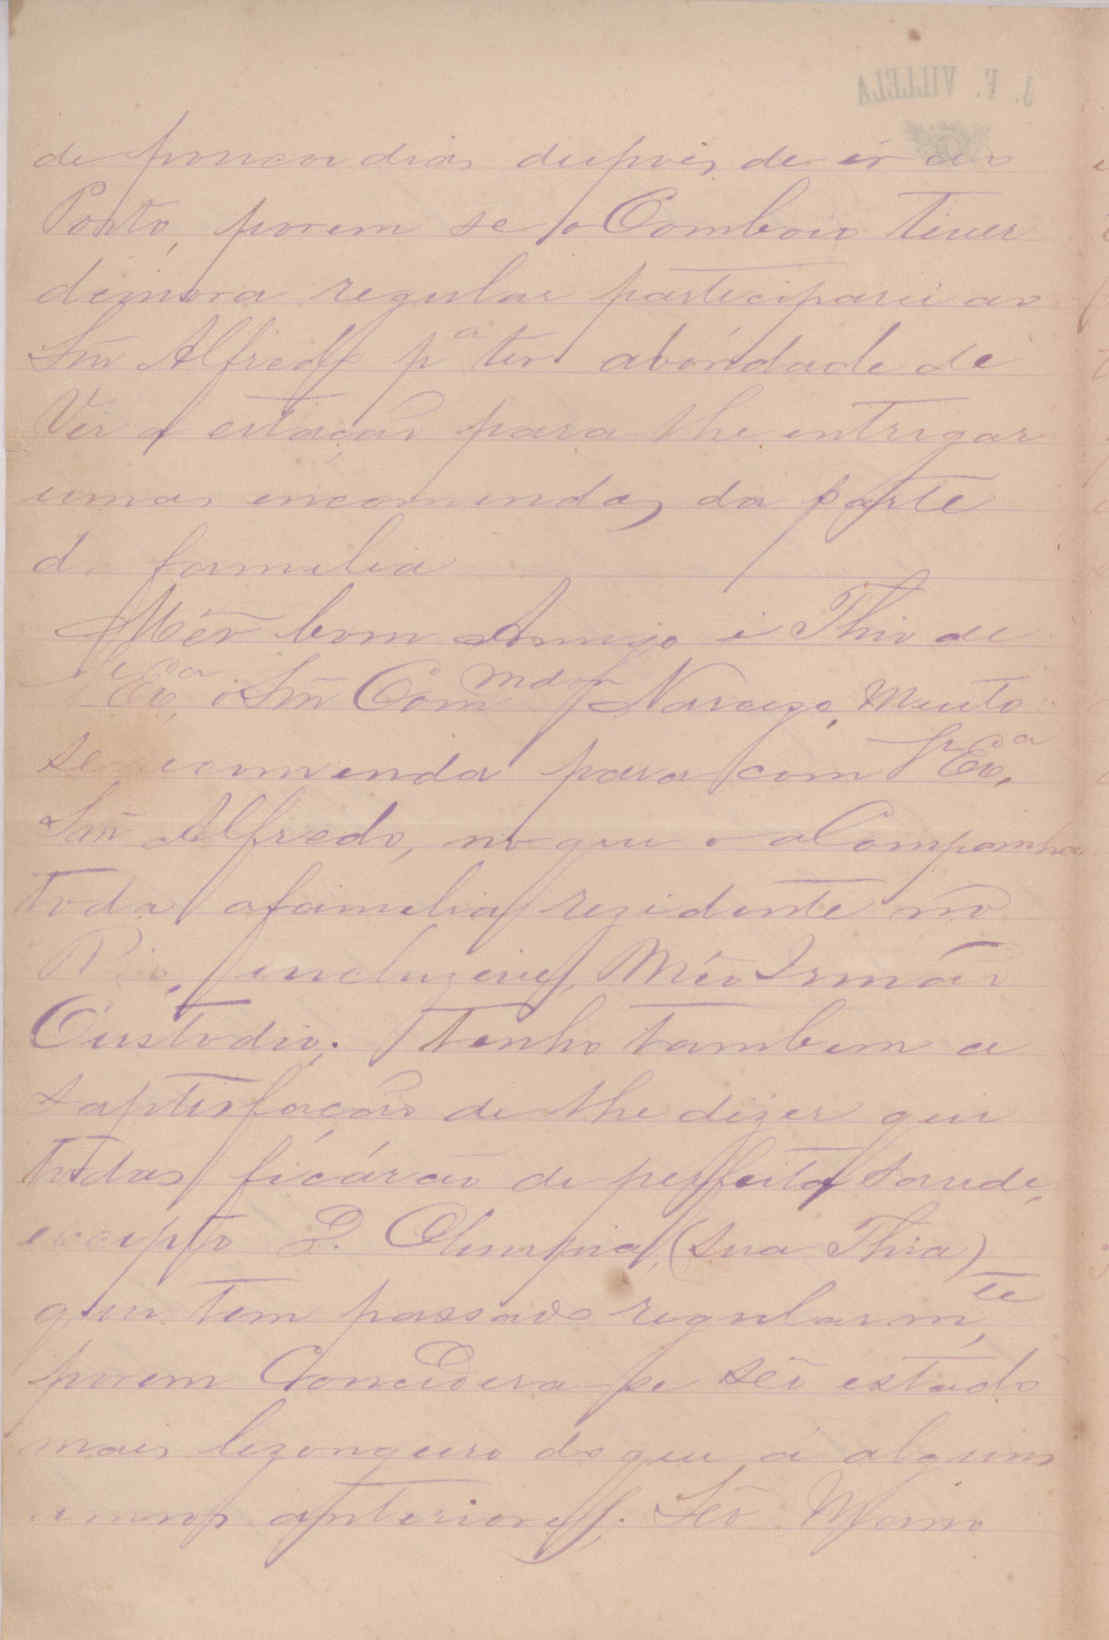 J. F. VILLELA
de poucos dias depois de ir ao
Porto, porem se o Comboio tiver
demora regular participarei ao
Snr Alfredo pª ter abondade de
Vir a estação para lhe entregar
umas encomendas da parte
da familia
Méo bom Amigo e Thio de
V Exª o Snr Commdor Narcizo, Muito
se recomenda para com V Exª
Snr Alfredo, no que o aCompanha
toda afamilia rezidente no
Rio, incluzive Méo Irmão
Custodio. Tenho tambem a
saptisfação de lhe dizer que
todas ficárão de perfeita saude,
excepto D. Olimpia, (sua Thia)
que tem passado regularmte,
porem Concidera-se séo estado
mais lizongeiro do que á alguns
annos anteriores. Séo Mano